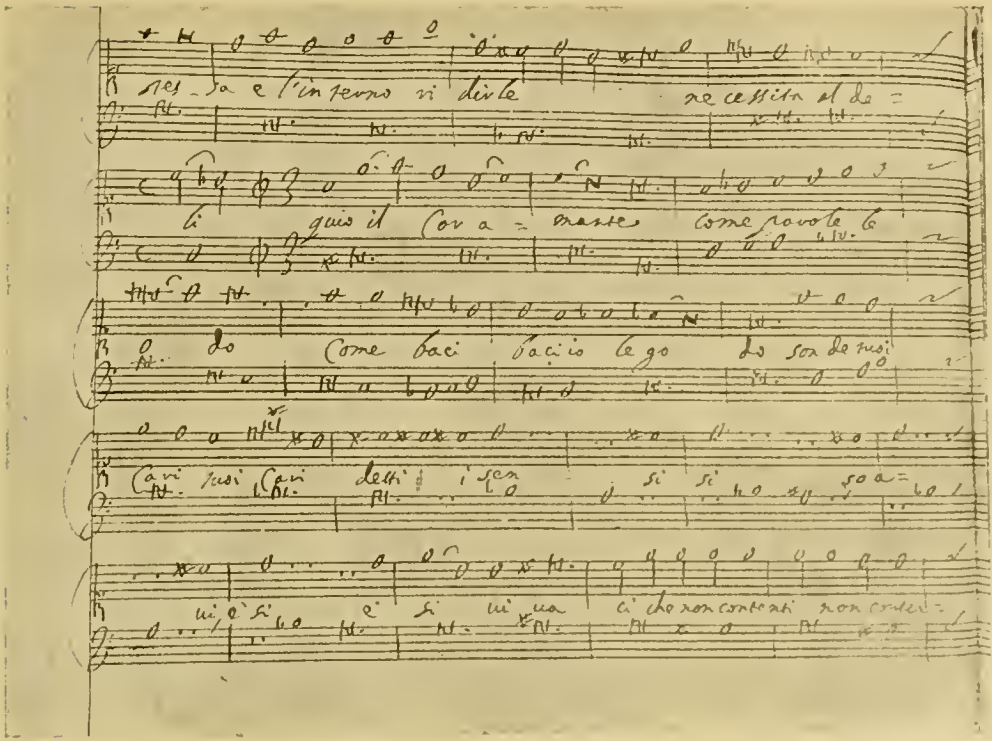 stes - sa e l'inferno vi dirle necessita al de =
li quio il Cor a = mante come parole le
o do Come baci baci io le go do son de tuoi
Cari tuoi Cari detti i sen si si soa =
ui, e si e si ui ua ci che non contenti non conten =